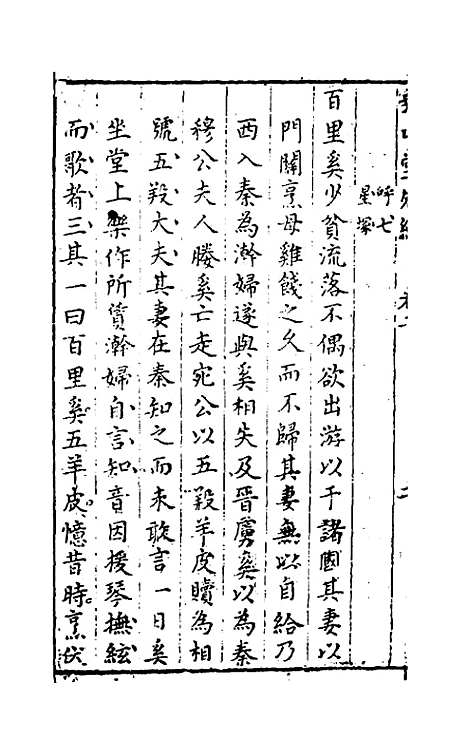 呼七
星檠
百里奚少貧流落不偶欲出游以干諸國其妻以
門關烹母雞餞之久而不歸其妻無以自給乃
西入秦為澣婦遂與奚相失及晉虜奚以為秦
穆公夫人媵奚亡走宛公以五羖羊皮贖為相
號五羖大夫其妻在秦知之而未敢言一日奚
坐堂上樂作所賃澣婦自言知音因援琴撫絃
而歌者三其一曰百里奚五羊皮憶昔時烹伏